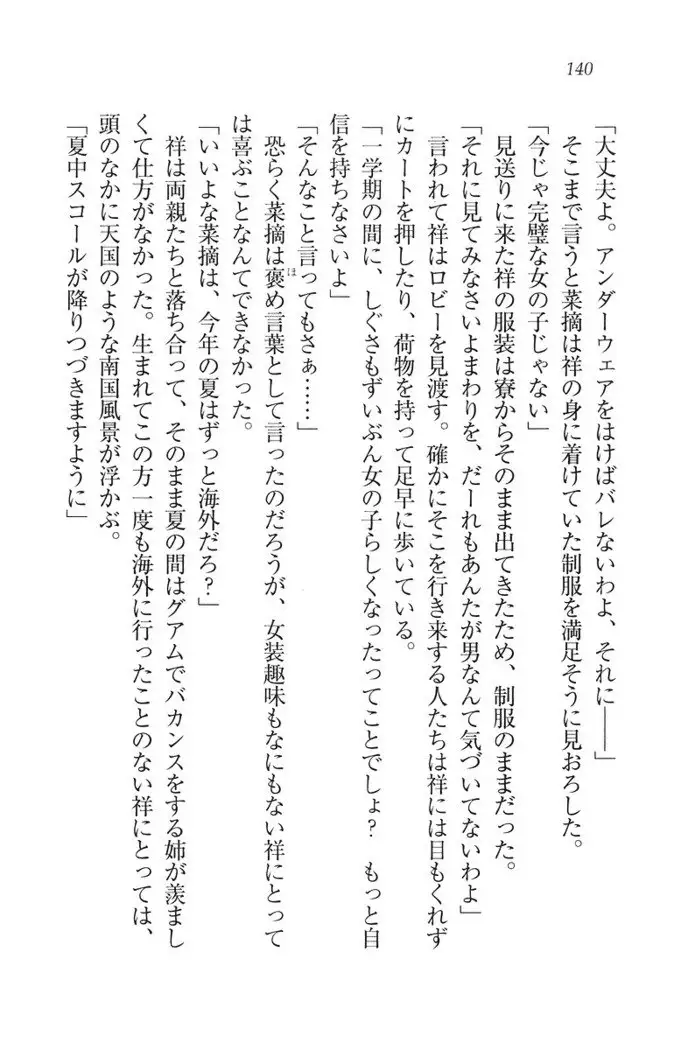 140
「大丈夫よ。アンダーウェアをはけばバレないわよ、それに――」
そこまで言うと菜摘は祥の身に着けていた制服を満足そうに見おろした。
「今じゃ完璧な女の子じゃない」
見送りに来た祥の服装は寮からそのまま出てきたため、制服のままだった。
「それに見てみなさいよまわりを、だーれもあんたが男なんて気づいてないわよ」
言われて祥はロビーを見渡す。確かにそこを行き来する人たちは祥には目もくれず
にカートを押したり、荷物を持って足早に歩いている。
「一学期の間に、しぐさもずいぶん女の子らしくなったってことでしょ？　もっと自
信を持ちなさいよ」
「そんなこと言ってもさぁ……」
恐らく菜摘は褒め言葉として言ったのだろうが、女装趣味もなにもない祥にとって
は喜ぶことなんてできなかった。
「いいよな菜摘は、今年の夏はずっと海外だろ？」
祥は両親たちと落ち合って、そのまま夏の間はグアムでバカンスをする姉が羨まし
くて仕方がなかった。生まれてこの方一度も海外に行ったことのない祥にとっては、
頭のなかに天国のような南国風景が浮かぶ。
「夏中スコールが降りつづきますように」